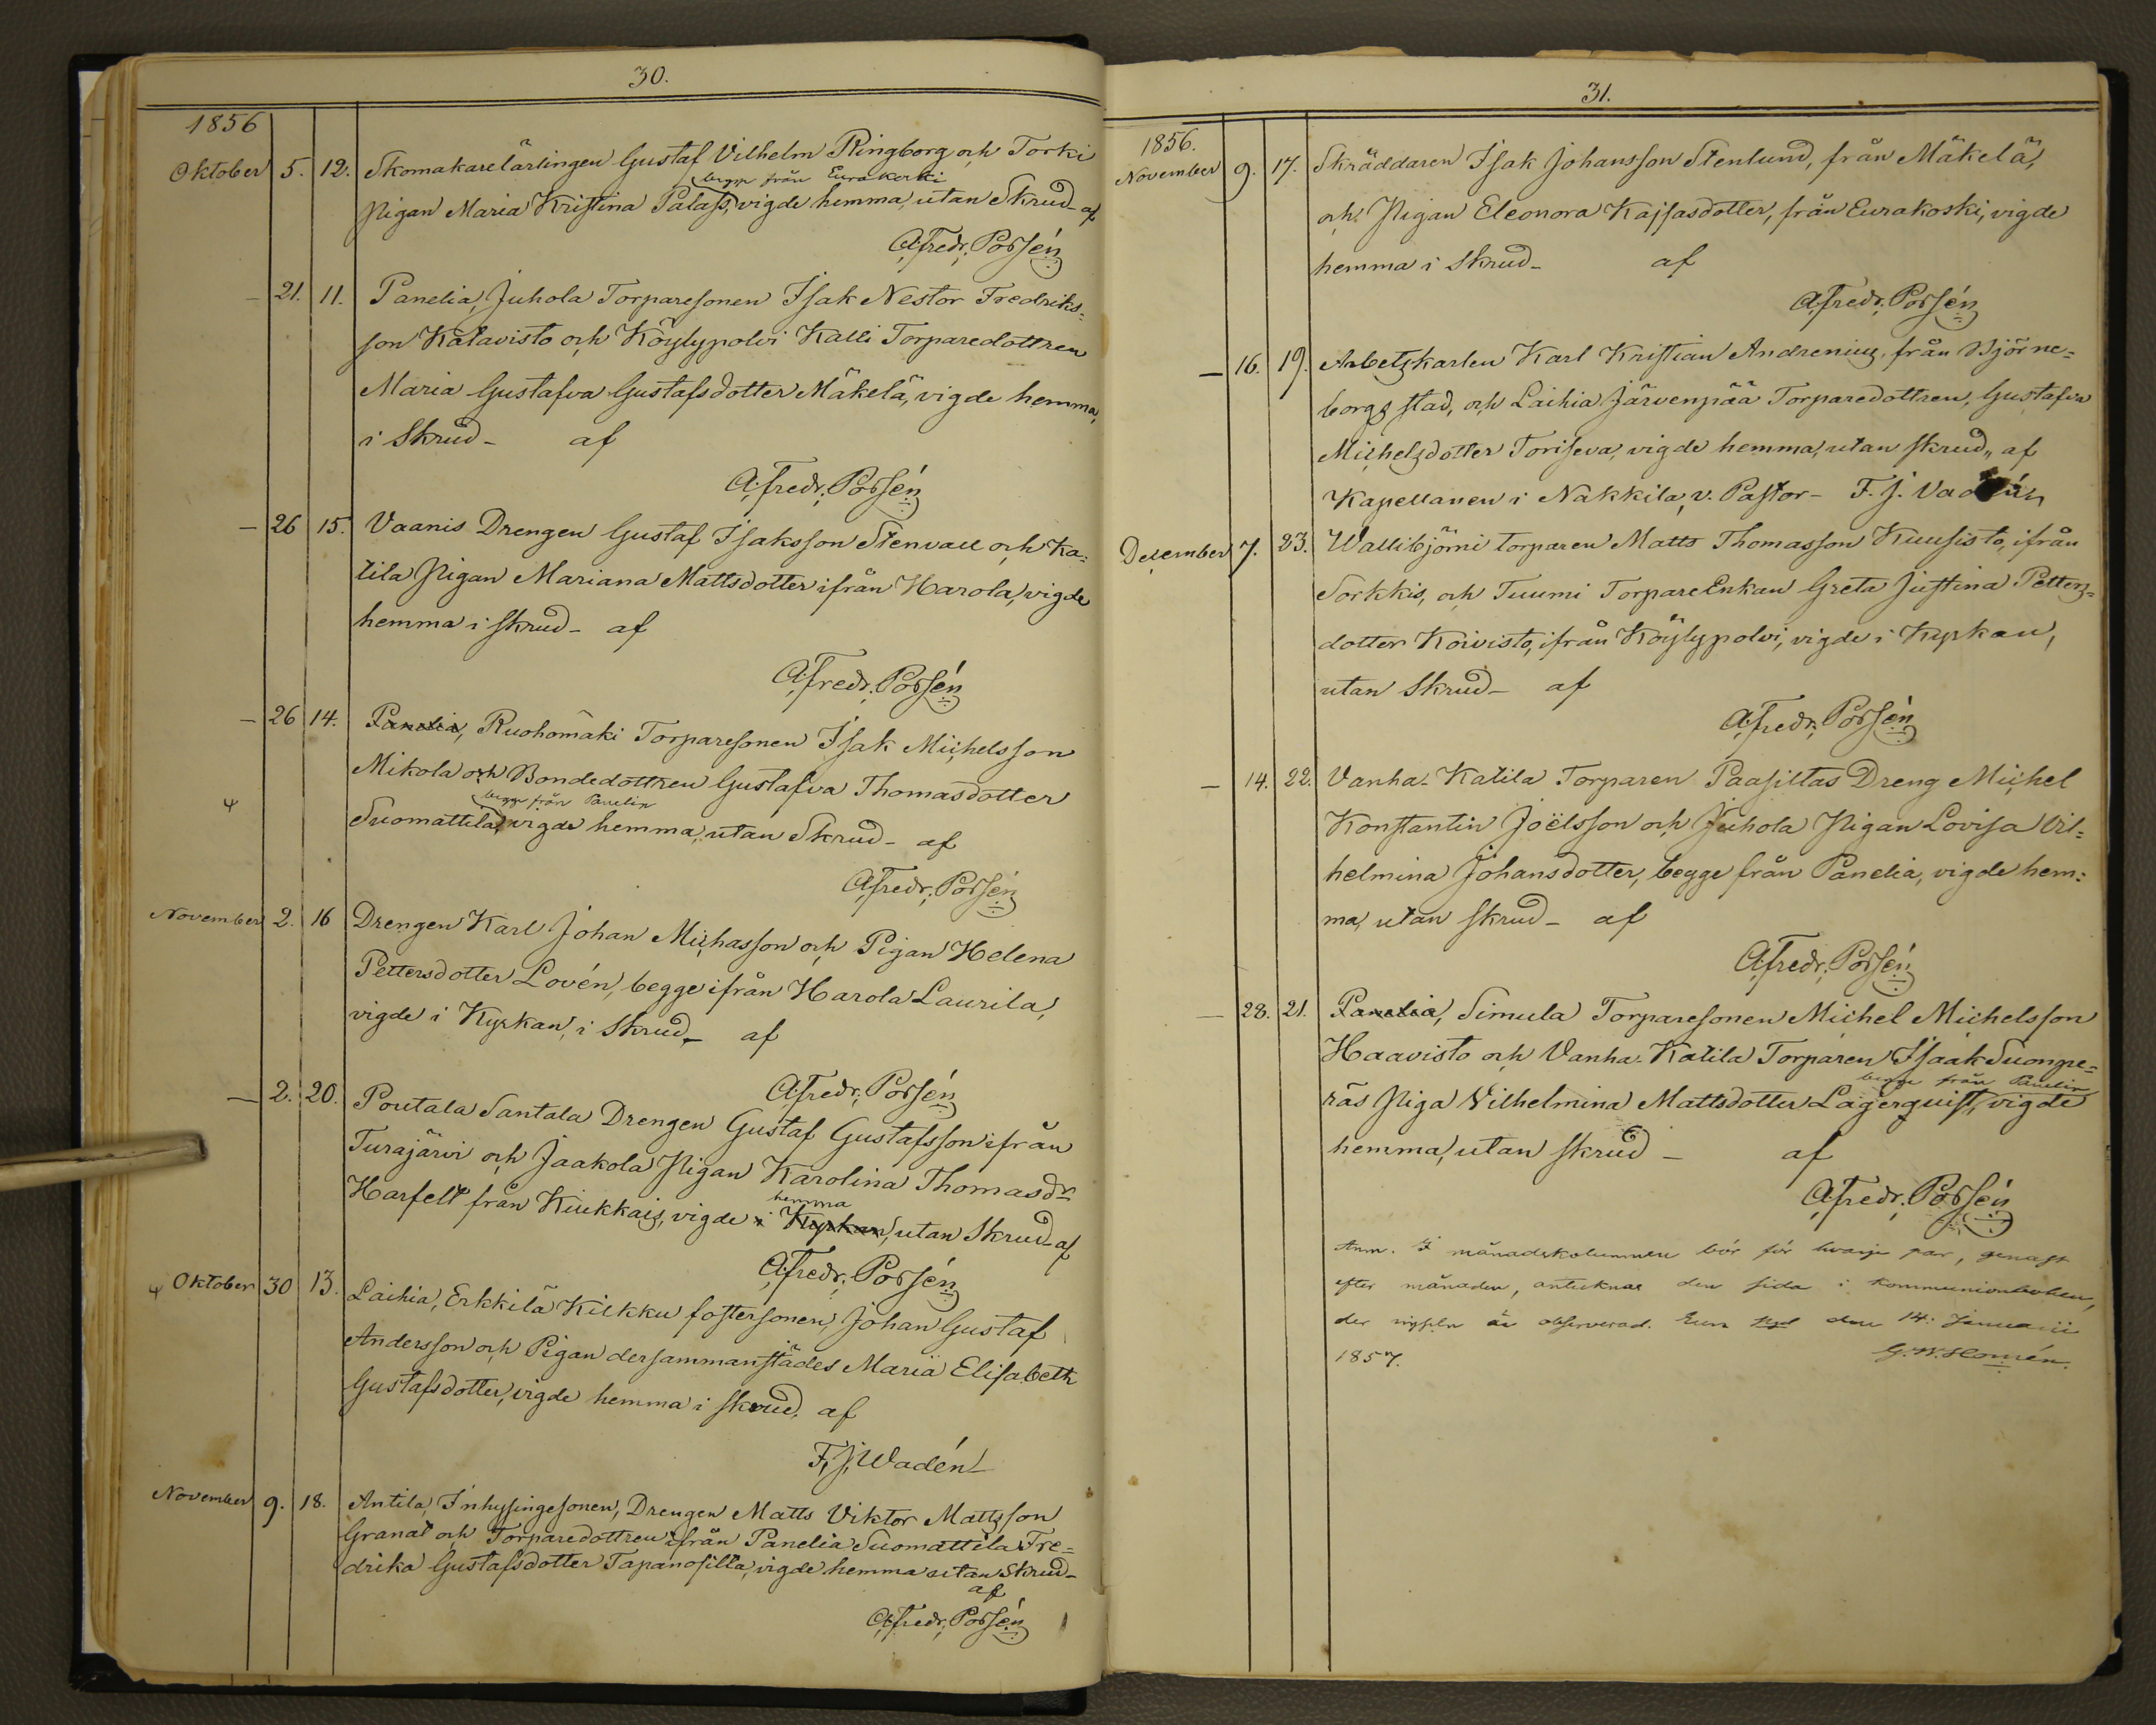 30.
1856
Oktober 5. 12. Skomakarelärlingen Gustaf Vilhelm Ringborg och Torki
begge från Eurakoski
Pigan Maria Kristina Palass, vigde hemma, utan Skrud - af
A. Fredr. Porsén
— 21. 11. Panelia, Juhola Torparesonen Isak Nestor Fredriks-
son Katavisto och Köylypolvi Kalli Torparedottren
Maria Gustafva Gustafsdotter Mäkelä, vigde hemma,
i Skrud - af
A. Fredr. Porsén
— 26 15. Vaanis Drengen Gustaf Isaksson Stenvall och Ka-
tila Pigan Mariana Mattsdotter ifrån Harola, vigde
hemma i skrud - af
A. Fredr. Porsén
— 26 14. Panelia, Ruohomäki Torparesonen Isak Michelsson
Mikola och Bondedottren Gustafva Thomasdotter
begge från Panelia
Suomattila, vigde hemma, utan Skrud - af
A. Fredr. Porsén
November 2. 16 Drengen Karl Johan Michasson och Pigan Helena
Pettersdotter Lovén, begge ifrån Harola Laurila,
vigde i Kyrkan, i Skrud, - af
A. Fredr. Porsén
— 2. 20. Poutala Santala Drengen Gustaf Gustafsson ifrån
Turajärvi och Jaakola Pigan Karolina Thomasdr
hemma
Harfelt från Kiukkais, vigde i Kyrkan, utan Skrud - af
A. Fredr. Porsén
Oktober 30 13. Laihia, Erkkilä Kilkku fostersonen, Johan Gustaf
Andersson och Pigan dersammanstädes Maria Elisabeth
Gustafsdotter, vigde hemma i skrud, af
F. J. Wadén
November 9. 18. Antila, Inhysingesonen, Drengen Matts Viktor Mattsson
Granat och Torparedottren ifrån Panelia Suomattila Fre-
drika Gustafsdotter Tapanosilta, vigde hemma utan Skrud -
af
A. Fredr. Porsén
31.
1856.
November 9. 17. Skräddaren Isak Johansson Stenlund, från Mäkelä,
och Pigan Eleonora Kajsasdotter, från Eurakoski, vigde
hemma i Skrud - af
A. Fredr. Porsén
— 16. 19. Arbetskarlen Karl Kristian Andrenius, från Björne-
borgs stad, och Laihia Järvenpää Torparedottren, Gustafva
Michelsdotter Toriseva, vigde hemma, utan skrud, af
Kapellanen i Nakkila, v. Pastor - F. J. Vadén
December 7. 23. Wallibjörni torparen Matts Thomasson Kuusisto, ifrån
Sorkkis, och Tuumi TorpareEnkan Greta Justina Petters-
dotter Koivisto, ifrån Köylypolvi, vigde i Kyrkan,
utan Skrud - af
A. Fredr. Porsén
— 14. 22. Vanha-Katila Torparen Paasiltas Dreng Michel
Konstantin Joëlsson och Juhola Pigan Lovisa Vil-
helmina Johansdotter, begge från Panelia, vigde hem-
ma, utan skrud - af
A. Fredr. Porsén
— 28. 21. Panelia, Simula Torparesonen Michel Michelsson
Haavisto och Vanha-Katila Torparen Isaak Suonpe-
begge från Panelia
räs Piga Vilhelmina Mattsdotter Lagerquist, vigde
hemma, utan skrud - af
A. Fredr. Porsén
Anm. I månadskolumnen bör för hvarje par, genast
efter månaden, antecknas den sida i kommunionboken,
der vigseln är observerad. Eura den 14. Januarii
1857. G. W. Homén.